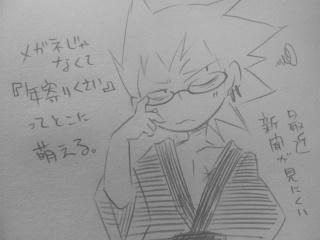 メガネじゃ
なくて
『年寄りくさい』
ってとこに
萌える。
最近
新聞が見にくい